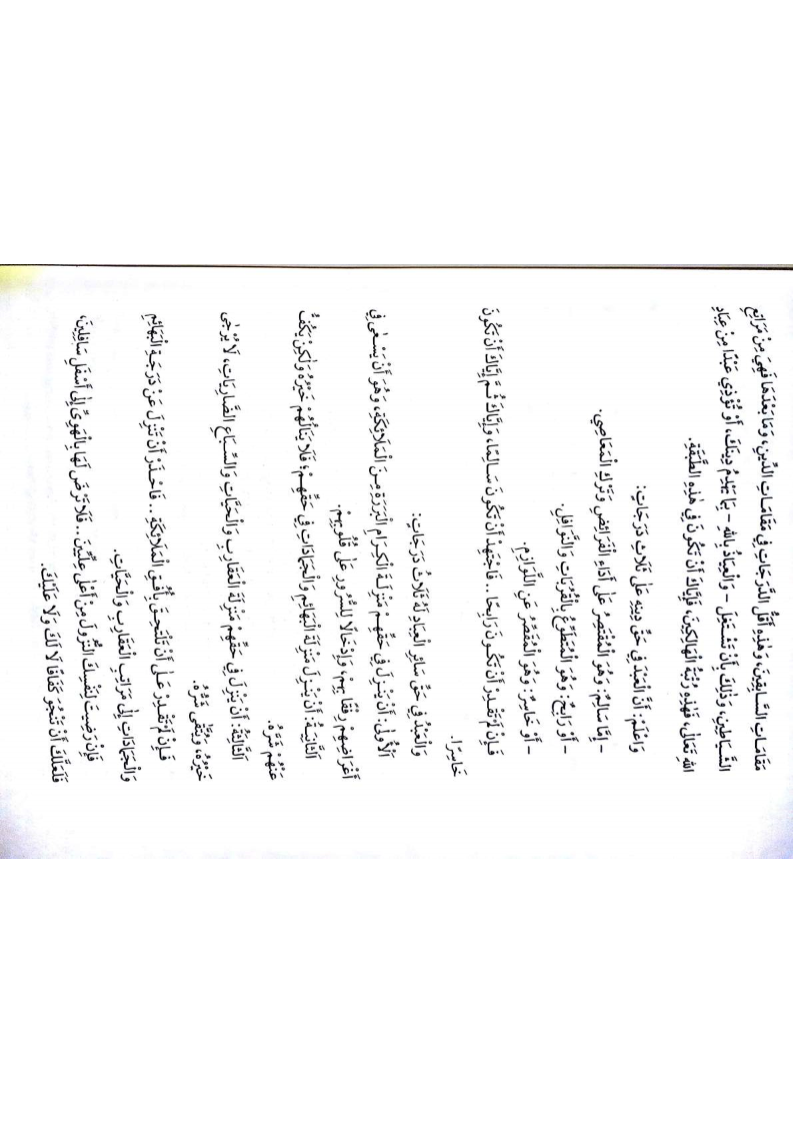 مَقَامَاتِ السَّابِقِينَ، وَهٰذِهِ أَقَلُّ الدَّرَجَاتِ فِي مَقَامَاتِ الدِّينِ، وَمَا بَعْدَهَا فَهِيَ مِنْ مَرَاتِعِ
الشَّيَاطِينِ، وَذٰلِكَ بِأَنْ تَشْتَغِلَ – وَالْعِيَاذُ بِاللهِ – بِمَا يَهْدِمُ دِينَكَ، أَوْ تُؤْذِيَ عَبْدًا مِنْ عِبَادِ
اللهِ تَعَالَى، فَهٰذِهِ رُتْبَةُ الْهَالِكِينَ، فَإِيَّاكَ أَنْ تَكُونَ فِي هٰذِهِ الطَّبَقَةِ.
وَاعْلَمْ: أَنَّ الْعَبْدَ فِي حَقِّ دِينِهِ عَلَى ثَلَاثِ دَرَجَاتٍ:
– إِمَّا سَالِمٌ: وَهُوَ الْمُقْتَصِرُ عَلَى أَدَاءِ الْفَرَائِضِ وَتَرْكِ الْمَعَاصِي.
– أَوْ رَابِحٌ: وَهُوَ الْمُتَطَوِّعُ بِالْقُرُبَاتِ وَالنَّوَافِلِ.
– أَوْ خَاسِرٌ: وَهُوَ الْمُقَصِّرُ عَنِ اللَّوَازِمِ.
فَإِنْ لَمْ تَقْدِرْ أَنْ تَكُونَ رَابِحًا.. فَاجْتَهِدْ أَنْ تَكُونَ سَالِمًا، وَإِيَّاكَ ثُمَّ إِيَّاكَ أَنْ تَكُونَ
خَاسِرًا.
وَالْعَبْدُ فِي حَقِّ سَائِرِ الْعِبَادِ لَهُ ثَلَاثُ دَرَجَاتٍ:
اَلْأُولَى: أَنْ يَنْزِلَ فِي حَقِّهِمْ مَنْزِلَةَ الْكِرَامِ الْبَرَرَةِ مِنَ الْمَلَائِكَةِ، وَهُوَ أَنْ يَسْعَى فِي
أَغْرَاضِهِمْ رِفْقًا بِهِمْ، وَإِدْخَالًا لِلسُّرُورِ عَلَى قُلُوبِهِمْ.
اَلثَّانِيَةُ: أَنْ يَنْزِلَ مَنْزِلَةَ الْبَهَائِمِ وَالْجَمَادَاتِ فِي حَقِّهِمْ؛ فَلَا يَنَالُهُمْ خَيْرُهُ وَلٰكِنْ يَكُفُّ
عَنْهُمْ شَرَّهُ.
اَلثَّالِثَةُ: أَنْ يَنْزِلَ فِي حَقِّهِمْ مَنْزِلَةَ الْعَقَارِبِ وَالْحَيَّاتِ وَالسِّبَاعِ الضَّارِيَاتِ، لَا يُرْجَى
خَيْرُهُ، وَيُتَّقَى شَرُّهُ.
فَإِنْ لَمْ تَقْدِرْ عَلَى أَنْ تَلْتَحِقَ بِأُفُقِ الْمَلَائِكَةِ.. فَاحْذَرْ أَنْ تَنْزِلَ عَنْ دَرَجَةِ الْبَهَائِمِ
وَالْجَمَادَاتِ إِلَى مَرَاتِبِ الْعَقَارِبِ وَالْحَيَّاتِ.
فَإِنْ رَضِيتَ لِنَفْسِكَ النُّزُولَ مِنْ أَعْلَى عِلِّيِّينَ.. فَلَا تَرْضَ لَهَا بِالْهَوِيِّ إِلَى أَسْفَلِ سَافِلِينَ،
فَلَعَلَّكَ أَنْ تَنْجُوَ كَفَافًا لَا لَكَ وَلَا عَلَيْكَ.